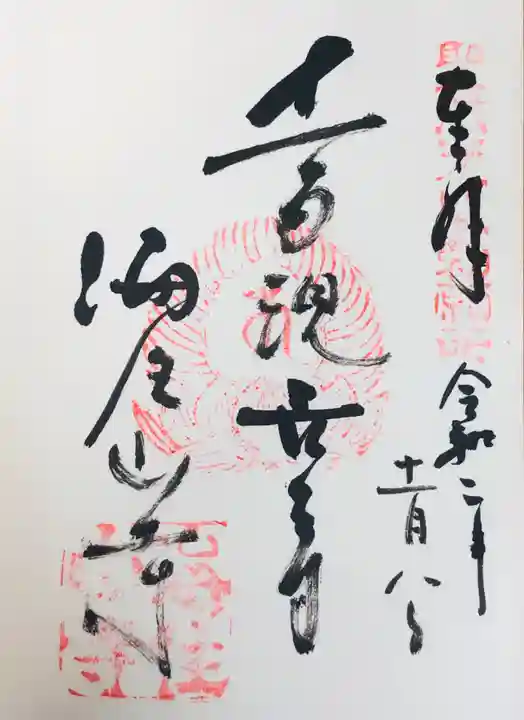 奉拝
令和二年
十一月八日
十一面観世音
海住山寺